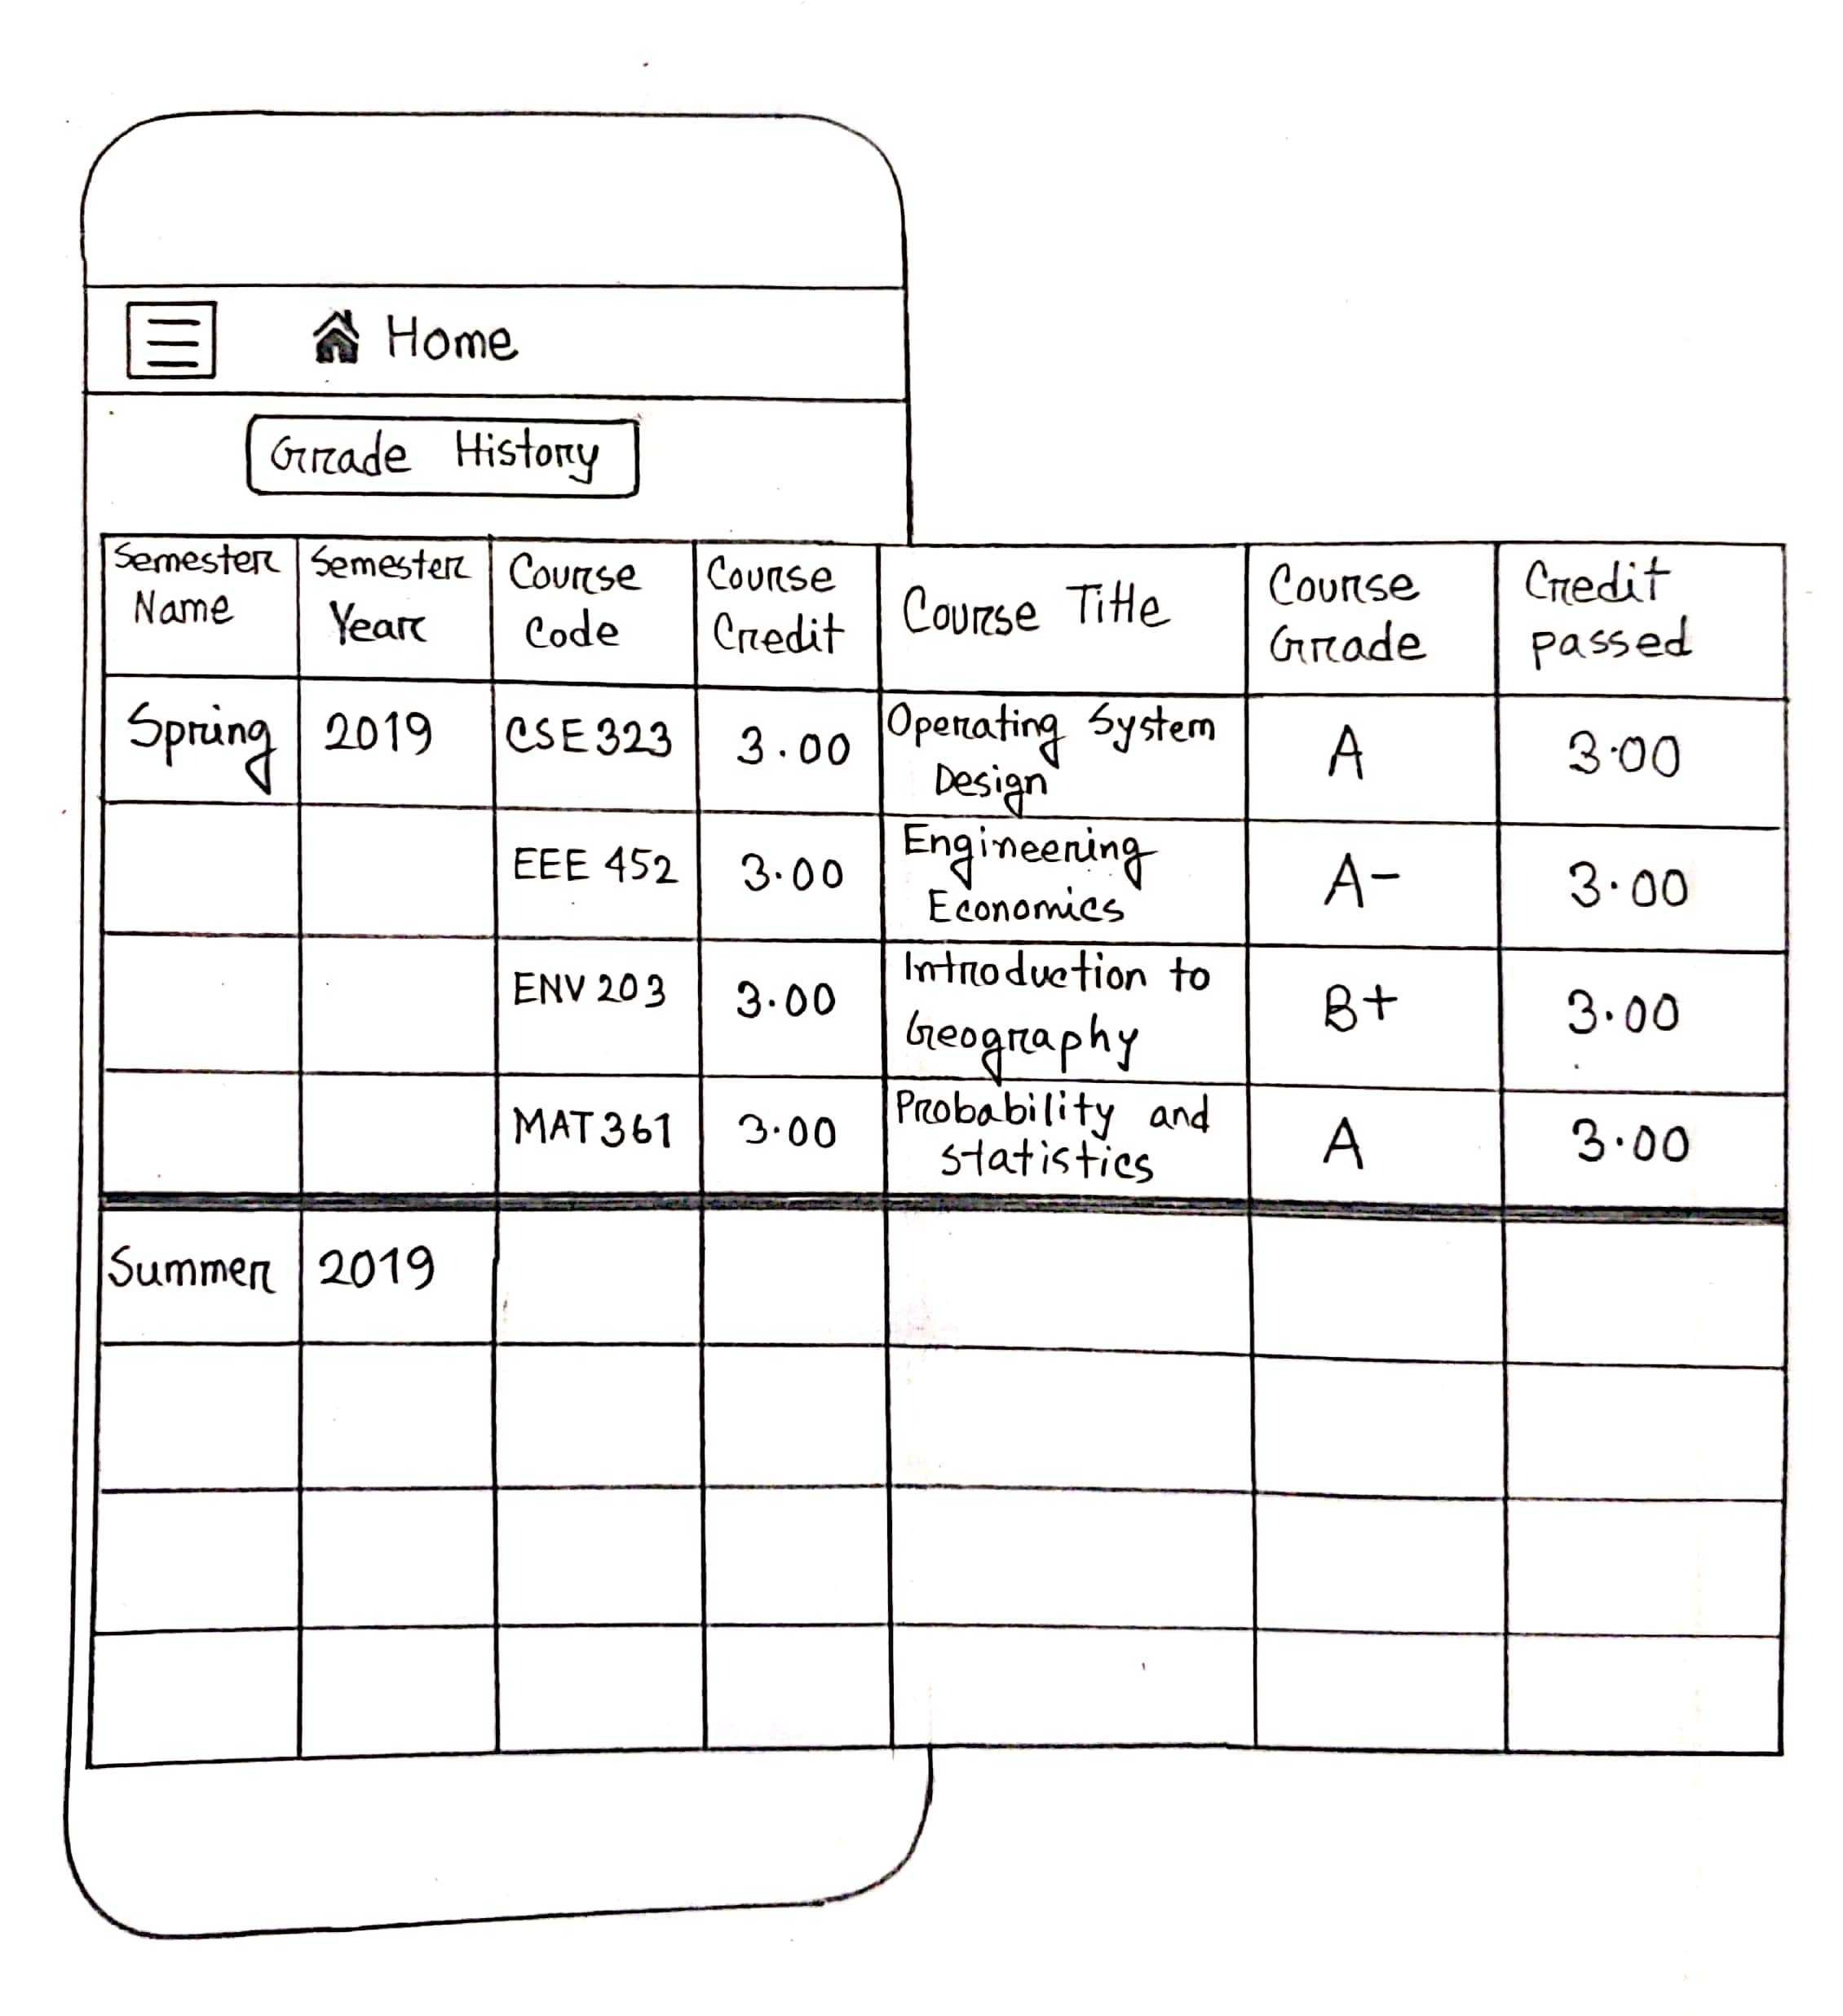 Home
Grade History
Semester Name Semester Year Course Code Course Credit Course Title Course Grade Credit passed
Spring 2019 CSE323 3.00 Operating System Design A 3.00
EEE 452 3.00 Engineering Economics A- 3.00
ENV 203 3.00 Introduction to Geography B+ 3.00
MAT361 3.00 Probability and statistics A 3.00
Summer 2019